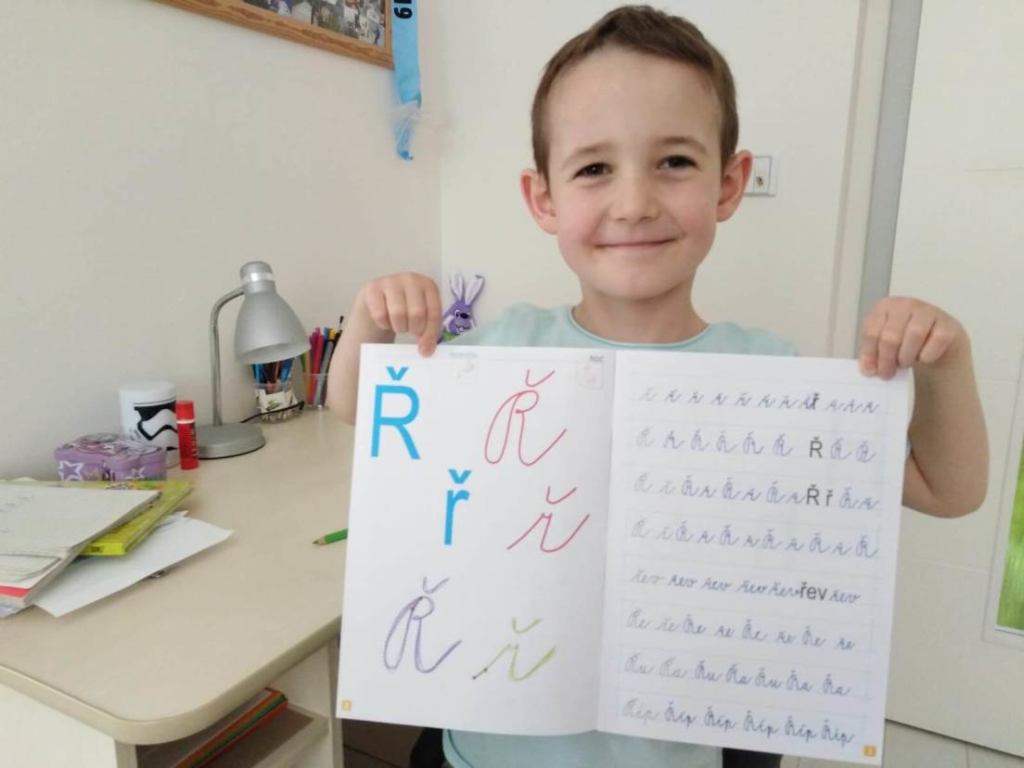 Ř Ř
ř ř
Ř ř
ř ř ř ř ř ř ř ř ř ř ř
Ř Ř Ř Ř Ř Ř Ř Ř Ř
Ř ř Ř ř Ř ř Ř ř Ř ř Ř ř
Ř ř Ř ř Ř ř Ř ř Ř ř Ř
řev řev řev řev řev řev řev
Ře ře Ře ře Ře ře Ře ře
Řu Řa Řu Řa Řu Řa Řa
Říp Říp Říp Říp Říp Říp